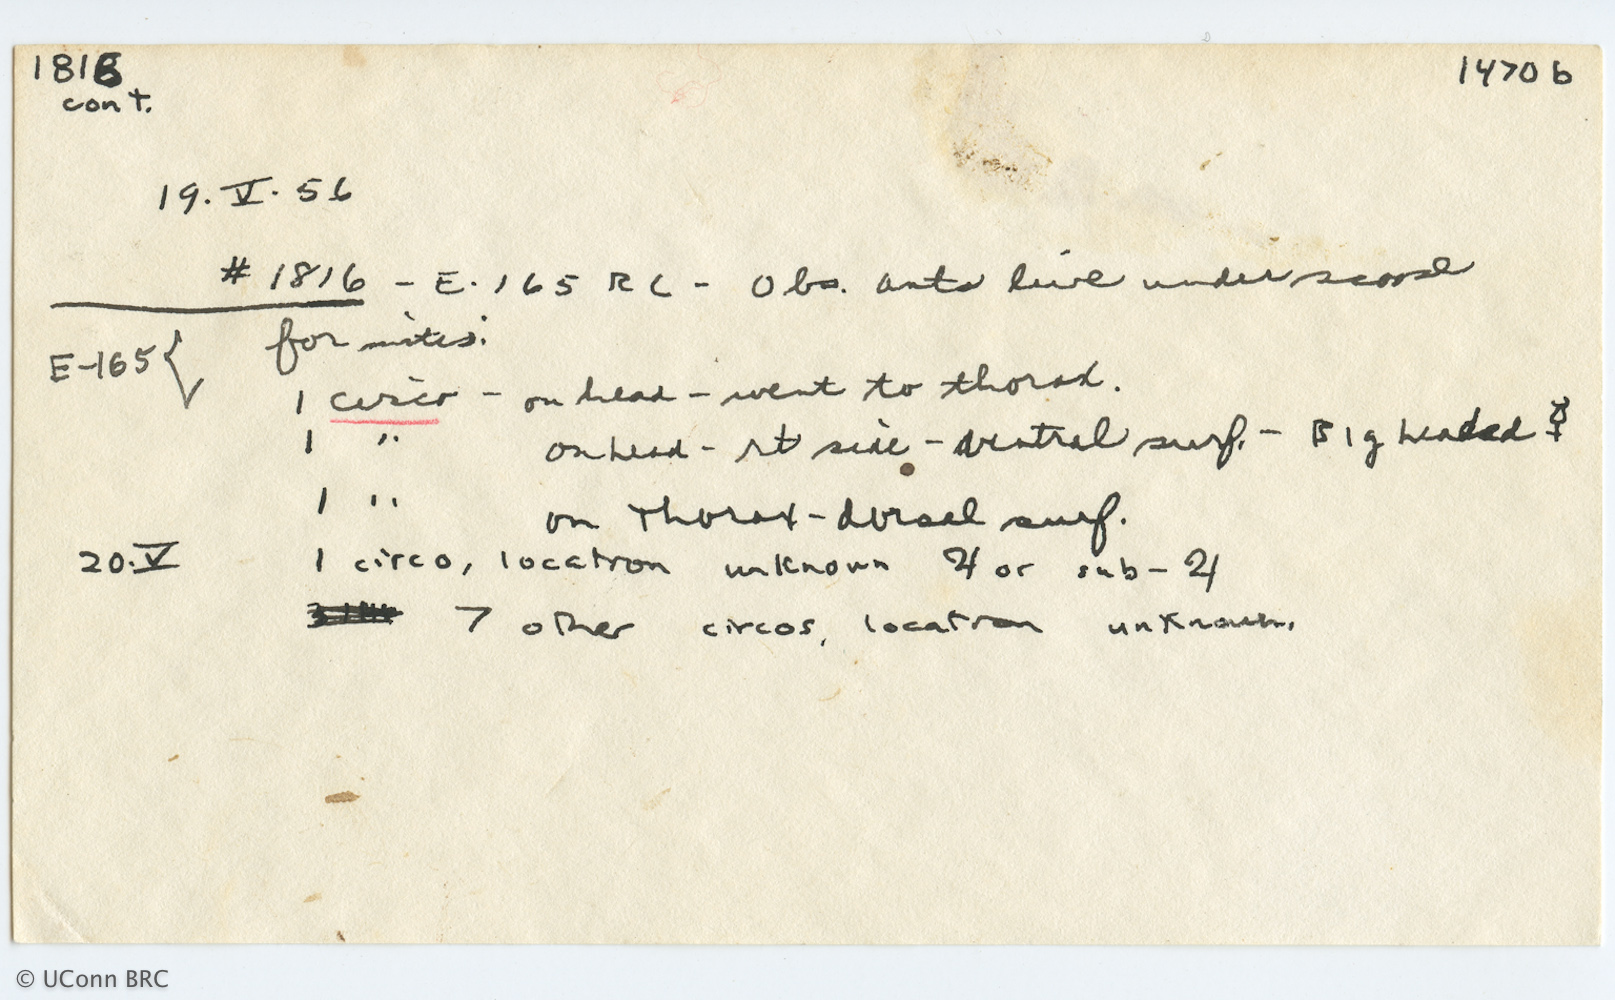 1816 14706
cont.
19.V.56
# 1816 - E.165 RC - Obs. ants live under scope
E-165 { for mites:
1 circo - on head - went to thorax.
1 " on head - rt side - ventral surf. - Big headed ☿
1 " on Thorax - dorsal surf.
20.V 1 circo, location unknown ♃ or sub-♃
7 other circos, location unknown.
© UConn BRC